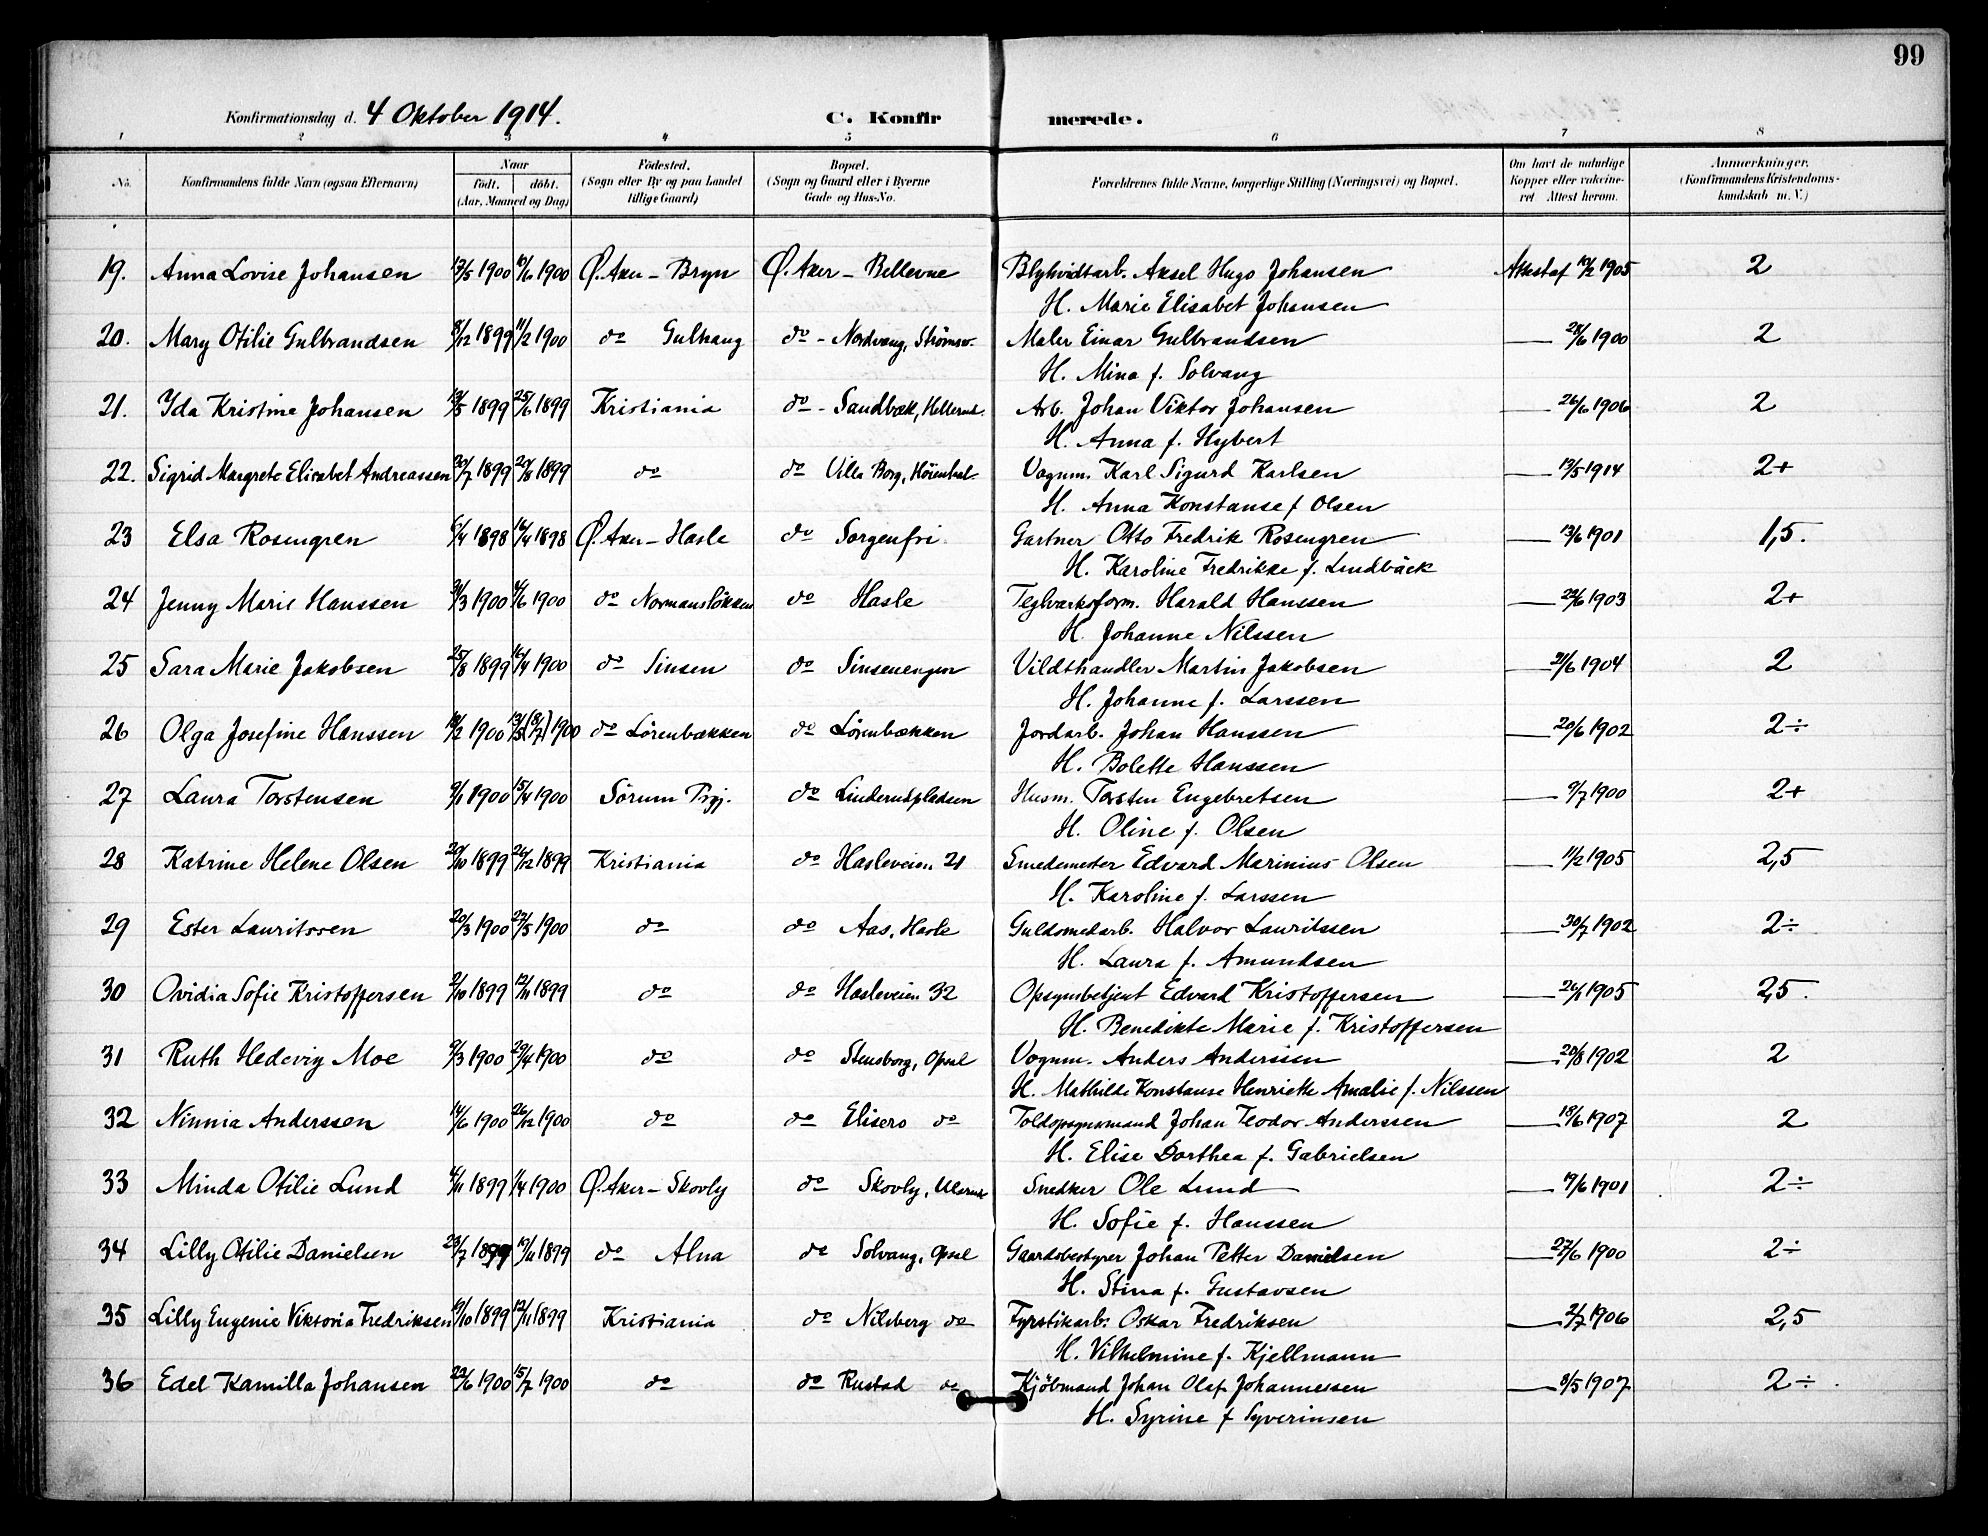 99
Konfirmationsdag d. 4 Oktober 1914. C. Konfirmerede.
1 2 3 4 5 6 7 8
No. Konfirmandens fulde Navn (ogsaa Efternavn) Naar født. døbt. (Aar, Maaned og Dag) Födested. (Sogn eller By og paa Landet tillige Gaard) Bopæl. (Sogn og Gaard eller i Byerne Gade og Hus-No. Forældrenes fulde Navne, borgerlige Stilling (Næringsvei) og Bopæl. Om havt de naturlige Kopper eller vakcineret. Attest herom. Anmærkninger. (Konfirmandens Kristendomskundskab m. V.)
19. Anna Lovise Johansen 1900 1900 Ø. Aker - Bryn Ø. Aker - Bellevue Blyhvidtarb. Aksel Hugo Johansen 1905 2
H. Marie Elisabet Johansen
20. Mary Otilie Gulbrandsen 1899 11/2 1900 do Gulhaug do - Nordvang, Strømsv. Maler Einar Gulbrandsen 28/6 1900 2
H. Mina f. Solvang
21. Ida Kristine Johansen 1899 25/6 1899 Kristiania do - Sandbæk, Hellerud. Arb. Johan Viktor Johansen 26/6 1906 2
H. Anna f. Hybert
22. Sigrid Margrete Elisabet Andreassen 20/7 1899 1899 do do Villa Borg, Vognm. Karl Sigurd Karlsen 13/5 1914 2+
H. Anna Konstanse f Olsen
23 Elsa Rosengren 1898 1898 Ø. Aker - Hasle do Sorgenfri Gartner Otto Fredrik Rosengren 13/6 1901 1,5.
H. Karoline Fredrikke f. Lindbäck
24 Jenny Marie Hanssen 1900 1900 do Normansløkken do Hasle Teglværksform. Harald Hanssen 1903 2+
H. Johanne Nilssen
25 Sara Marie Jakobsen 25/8 1899 1900 do Sinsen do Sinsenengen Vildthandler Martin Jakobsen 1904 2
H. Johanne f. Larssen
26 Olga Josefine Hanssen 1900 13/5 (8/7) 1900 do Lörenbækken do Lörenbækken Jordarb. Johan Hanssen 20/6 1902 2÷
H. Bolette Hanssen
27 Laura Torstensen 1900 15/4 1900 Sörum Prgj. do Linderudpladsen Husm. Torsten Engebretsen 9/7 1900 2+
H. Oline f. Olsen
28 Katrine Helene Olsen 20/10 1899 26/12 1899 Kristiania do Hasleveien. 21 Smedemester Edvard Marinius Olsen 11/2 1905 2,5
H. Karoline f. Larssen
29 Ester Lauritssen 20/3 1900 27/5 1900 do do Aas, Hasle Guldsmedarb. Halvor Lauritssen 30/7 1902 2÷
H. Laura f. Amundsen
30 Ovidia Sofie Kristoffersen 2/10 1899 12/11 1899 do do Hasleveien. 32 Opsynsbetjent Edvard Kristoffersen 26/1 1905 2,5.
H. Benedikte Marie f. Kristoffersen
31 Ruth Hedevig Moe 9/3 1900 29/4 1900 do do Stensborg, Opsal Vognm. Anders Anderssen 20/8 1902 2
H. Mathilde Konstanse Henriette Amalie f. Nilssen
32 Ninnia Anderssen 14/6 1900 26/12 1900 do do Elisero do Toldopsynsmand Johan Teodor Anderssen 18/6 1907 2
H. Elise Dorthea f. Gabrielsen
33 Minda Otilie Lund 4/11 1899 1/4 1900 Ø. Aker - Skovly do Skovly, Ulsrud Snedker Ole Lund 1901 2÷
H. Sofie f. Hanssen
34 Lilly Otilie Danielsen 23/7 1899 19/11 1899 do Alna do Solvang, Opsal Gaardsbestyrer Johan Petter Danielsen 27/6 1900 2÷
H. Stina f. Gustavsen
35 Lilly Eugenie Viktoria Fredriksen 19/10 1899 12/11 1899 Kristiania do Nilsberg do Fyrstikarb. Oskar Fredriksen 2/7 1906 2,5
H. Vilhelmine f. Kjellmann
36 Edel Kamilla Johansen 22/6 1900 15/7 1900 do do Rustad do Kjöbmand Johan Olaf Johannessen 8/5 1907 2÷
H. Syrine f Syverinsen